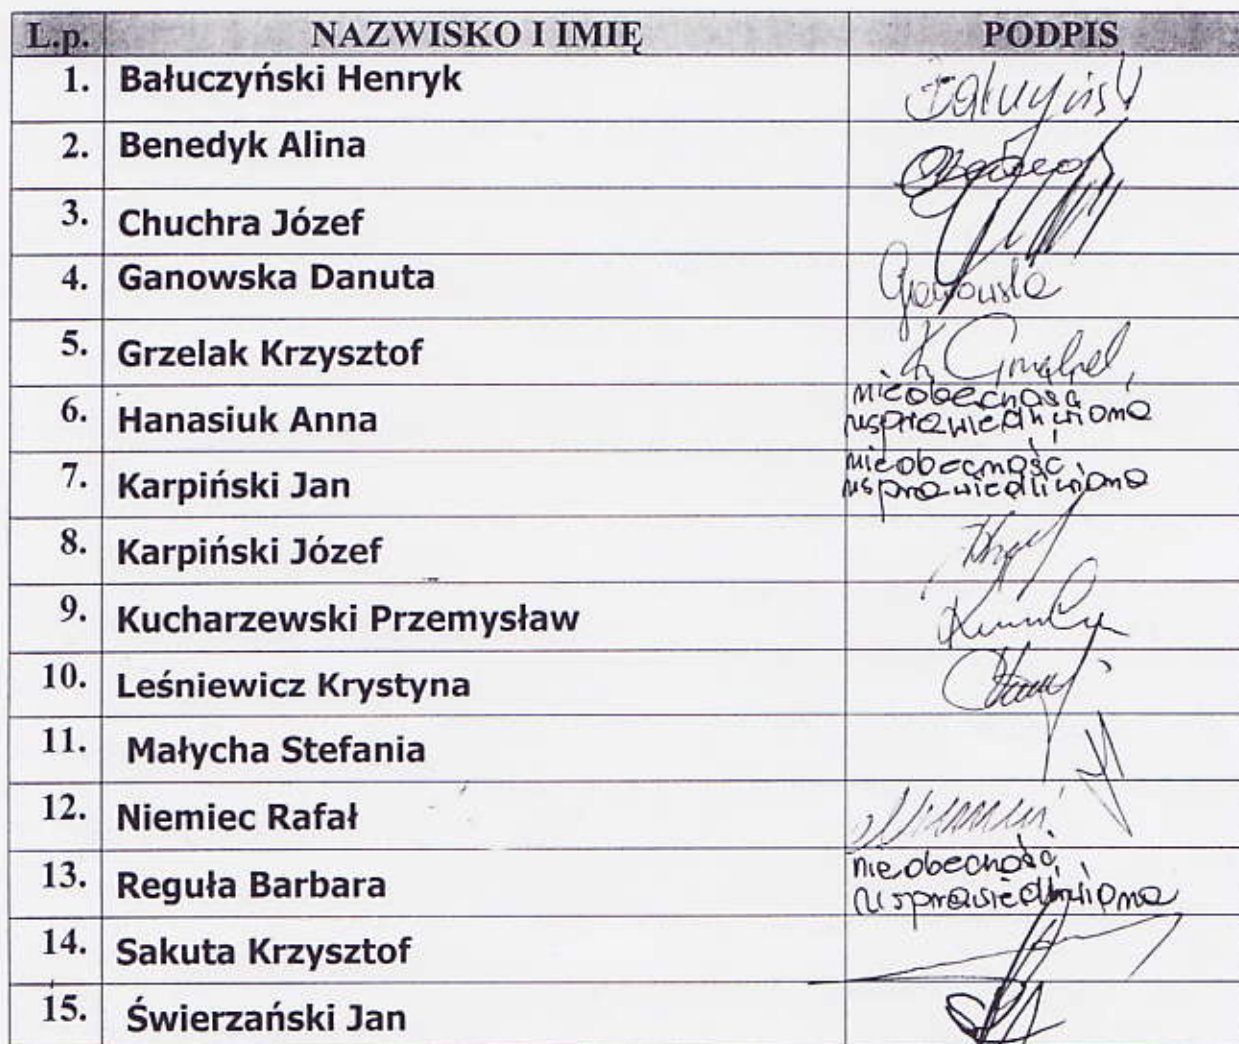 L.p. NAZWISKO I IMIĘ PODPIS
1. Bałuczyński Henryk
2. Benedyk Alina
3. Chuchra Józef
4. Ganowska Danuta Ganowska
5. Grzelak Krzysztof
6. Hanasiuk Anna nieobecność
usprawiedliwiona
7. Karpiński Jan nieobecność
usprawiedliwiona
8. Karpiński Józef
9. Kucharzewski Przemysław
10. Leśniewicz Krystyna
11. Małycha Stefania
12. Niemiec Rafał
13. Reguła Barbara nieobecność
usprawiedliwiona
14. Sakuta Krzysztof
15. Świerzański Jan